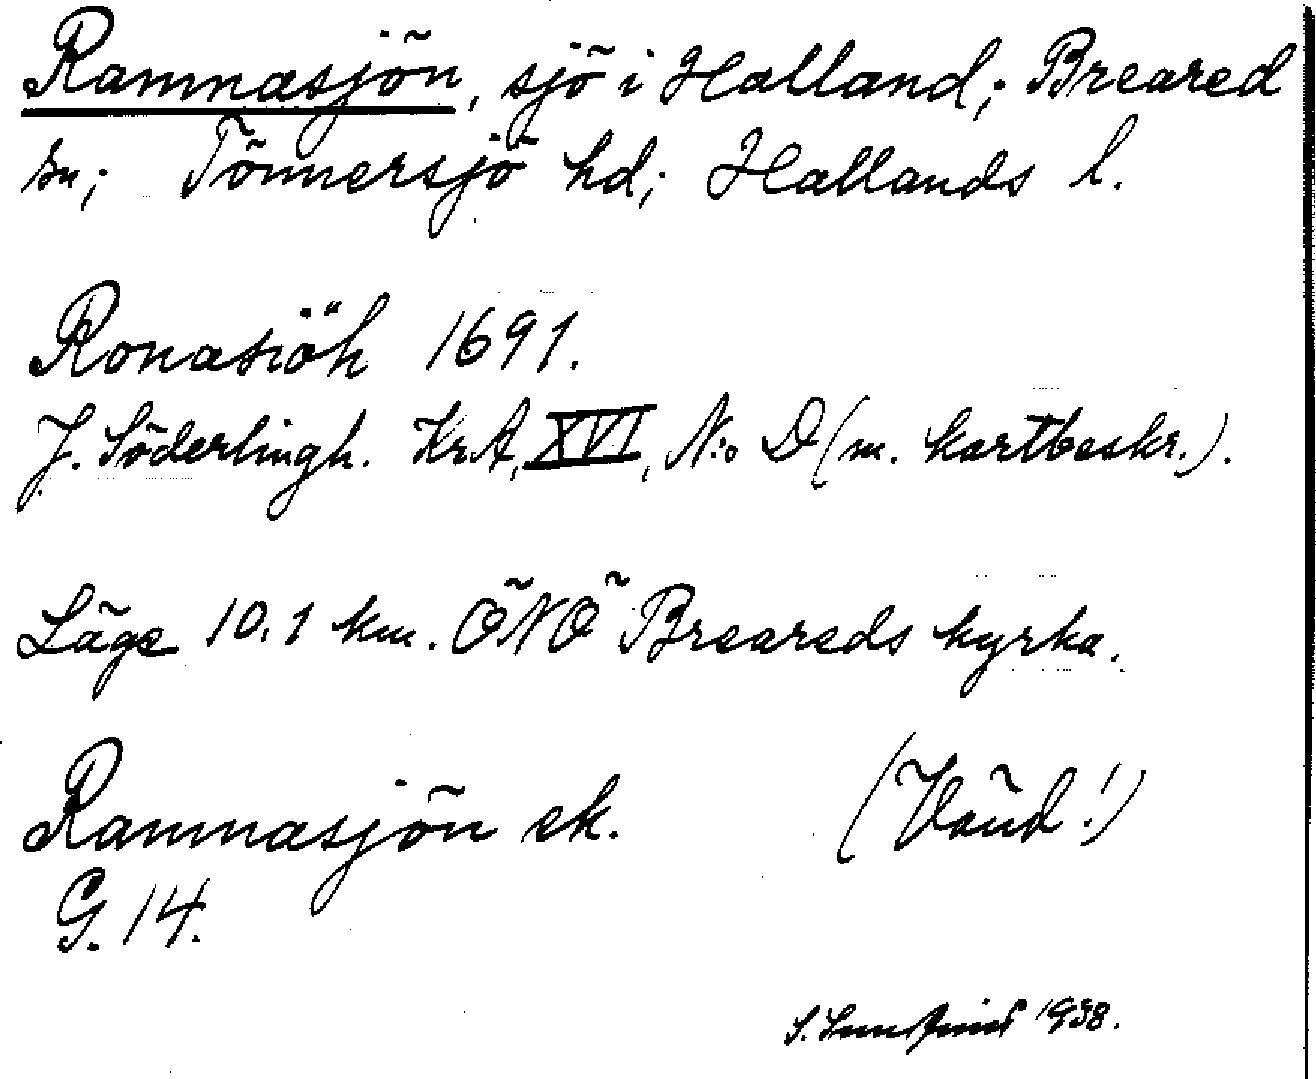 Ramnasjön, sjö i Halland; Breared
sn; Tönnersjö hd; Hallands l.
Ronasiöh 1691.
J. Söderlingh. KrA, XVI, N:o D (m. kartbeskr.).
Läge 10.1 km. ÖNÖ Breareds kyrka.
Ramnasjön ek. (Vänd!)
G. 14.
S. 1938.